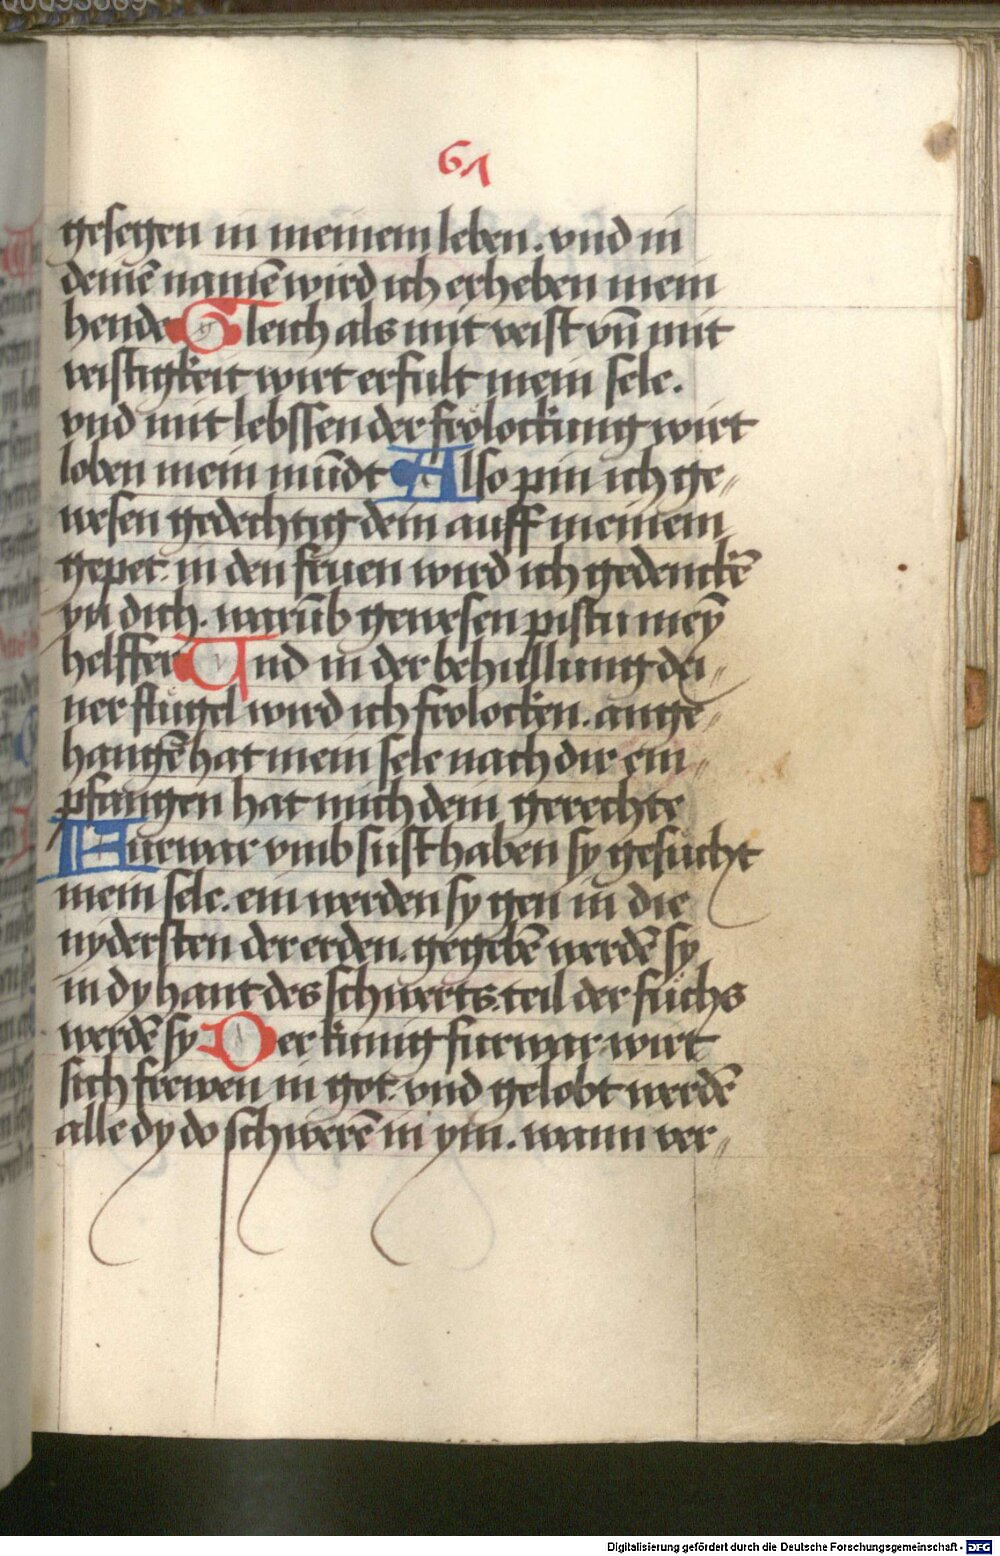 61
gesegen in meinem leben. vnd in
deinē namē wird ich erheben mein
hende Gleich als mit veist vn̄ mit
veistigkeit wirt erfult mein sele.
vnd mit lebssen der frolockung wirt
loben mein mūdt Also pin ich ge〃
wesen gedechtig dein auff meinem
gepet. in den fruen wird ich gedenckē
yn dich. warūb gewesen pistu meȳ
helffer Vnd in der behullung dei〃
ner flugel wird ich frolocken. ange〃
hangē hat mein sele nach dir ein〃
pfangen hat mich dein gerechte
Furwar vmb sust haben sy gesucht
mein sele. ein werden sy gen in die
nydersten der erden. gegebē werdē sy
in dy hant des schwerts. teil der fuchs
werdē sy Der kunig furwar wirt
sich frewen in got. vnd gelobt werdē
alle dy do schwerē in ym. wann ver〃
Digitalisierung gefördert durch die Deutsche Forschungsgemeinschaft - DFG